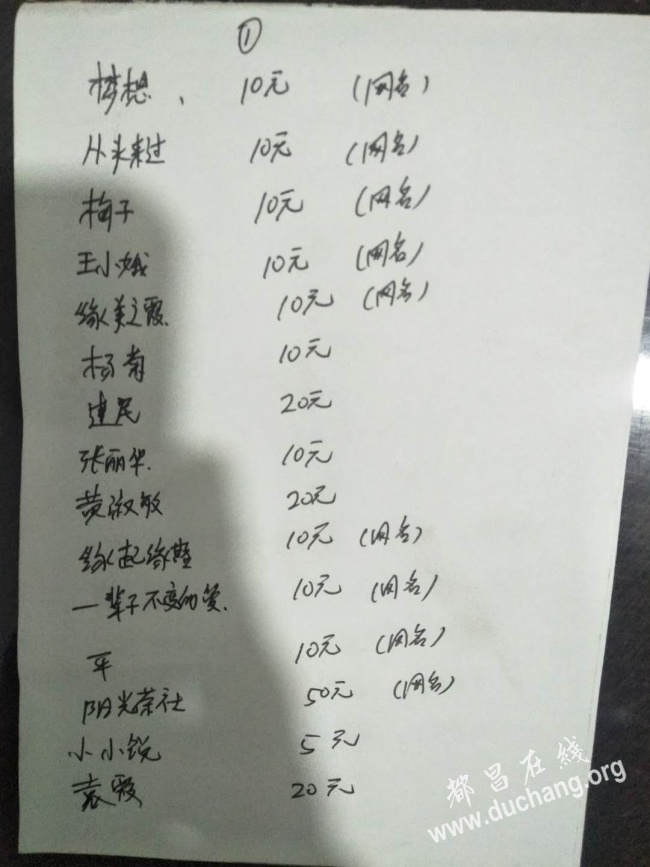 ①
梦想、 10元 (网名)
从头来过 10元 (网名)
梅子 10元 (网名)
王小娥 10元 (网名)
缘美之霞 10元 (网名)
杨南 10元
建民 20元
张丽华 10元
黄淑敏 20元
缘起缘 10元 (网名)
一辈子不变的爱 10元 (网名)
平 10元 (网名)
阳光茶社 50元 (网名)
小小锐 5元
袁霞 20元
都昌在线
www.duchang.org